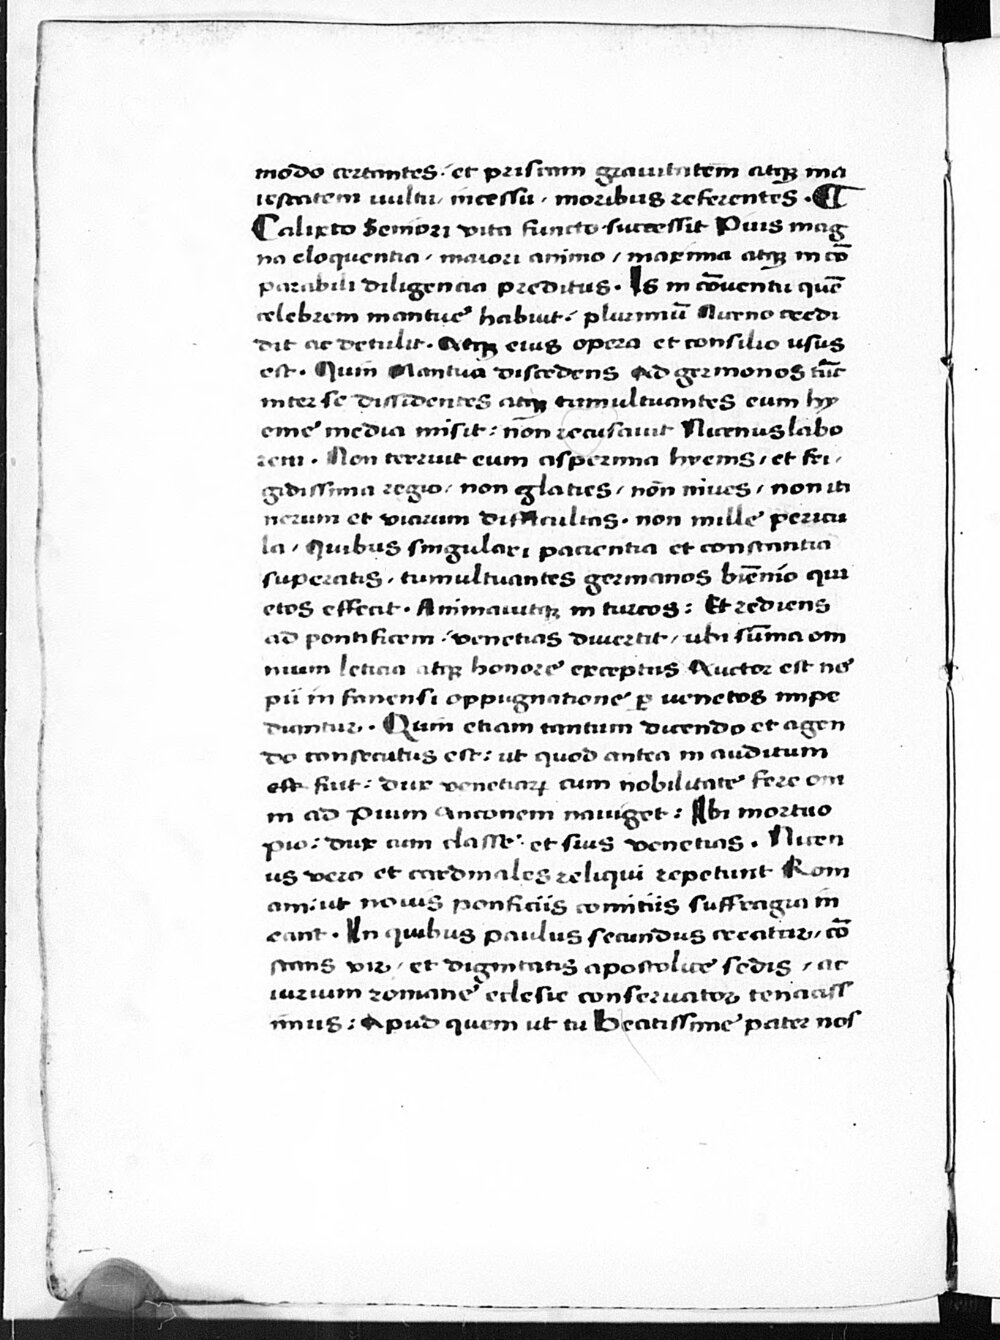 modo certantes · et priscam grauitatem atqꝫ ma
iestatem uultu, incessu, moribus referentes · ¶
Calixto Seniori vita functo successit Pius mag
na eloquentia, maiori animo, maxima atqꝫ in cō
parabili diligencia preditus · Is in cōuentu quē
celebrem mantue habuit · plurimū Niceno credi
dit ac detulit · Atqꝫ eius opera et consilio usus
est · Quin Mantua discedens Ad germonos tūc
inter se dissidentes atqꝫ tumultuantes eum hy
eme media misit : nōn recusauit Nicenus labo
rem · Non terruit eum asperrima hyems, et fri,
gidissima regio, non glaties, nōn niues, non iti
nerum et viarum difficultas · non mille pericu
la, Quibus singulari pacientia et constantia
superatis, tumultuantes germanos biēnio qui
etos effecit · Animauitqꝫ in turcos : Et rediens
ad pontificem, venetias diuertit, ubi sūma om
nium leticia atqꝫ honore exceptus Auctor est ne
pii in fanensi oppugnatione ꝑ uenetos impe
diantur · Quin etiam tantum dicendo et agen
do consecutus est : ut quod antea in auditum
est fuit : dux venetiaꝝ cum nobilitate fere om
ni ad Pium Anconem nauiget : Ibi mortuo
pio : dux cum classe et suis venetias · Nicen
us vero et cardinales reliqui repetunt Rom
am : ut nouis pontificiis comitiis suffragia in
eant · In quibus paulus secundus creatur, cō
stans vir, et dignitatis apostolice sedis, ac
iurium romane eclesie conseruator tenaciss
imus : Apud quem ut tu Beatissime pater nos